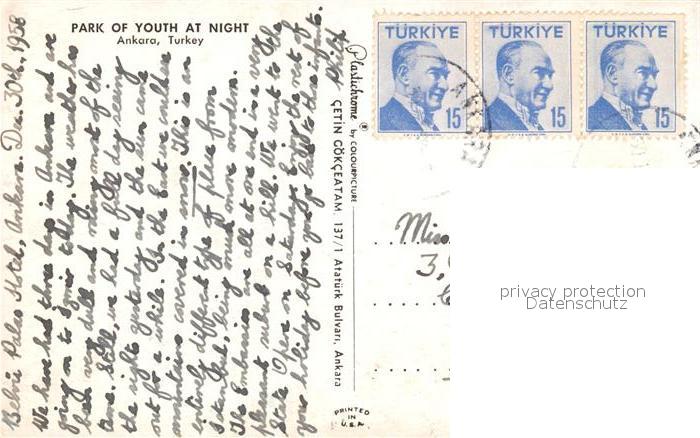 PARK OF YOUTH AT NIGHT
Ankara, Turkey
Palas Hotel, Ankara. Dec. 30th, 1958
We have had three days in Ankara and are
going on to Izmir today. The weather has
been very dull and rainy most of the
time. Still, we had a full day seeing
the sights yesterday and the sun came
out for a while. On the East we could see
mountains covered in snow. This is an
entirely different type of place from
Istanbul, being much more modern.
The Embassies are all at one end in a very
pleasant suburb on a hill. We went to the
State Opera on Saturday. Enjoy the rest of
your holiday before you go back to the infants.
Plastichrome ® by COLOURPICTURE
ÇETİN GÖKÇEATAM, 137/1 Atatürk Bulvarı, Ankara
PRINTED
IN
U.S.A.
TÜRKİYE TÜRKİYE TÜRKİYE
15 15 15
Miss
3,
privacy protection
Datenschutz